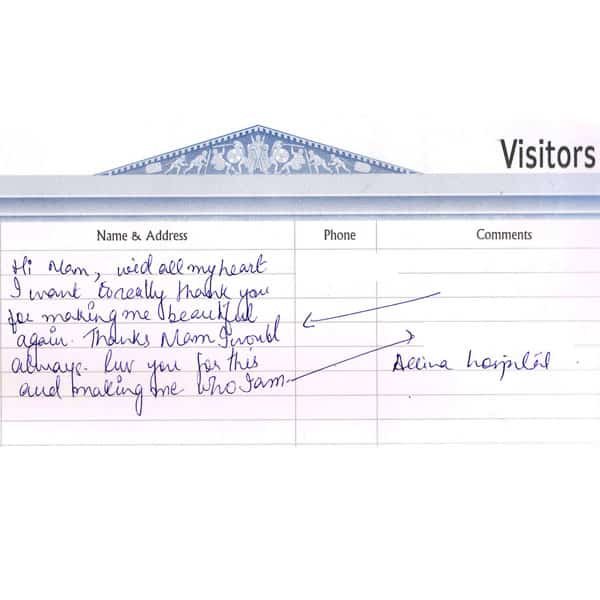 Visitors
Name & Address Phone Comments
Hi Mam, wid all my heart
I want to really thank you
for making me beautiful
again. Thanks Mam I would
always. luv you for this
and making me who I am
hospital.